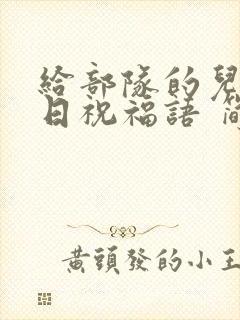 給部隊的兒
日祝福語 簡
黃頭發的小王